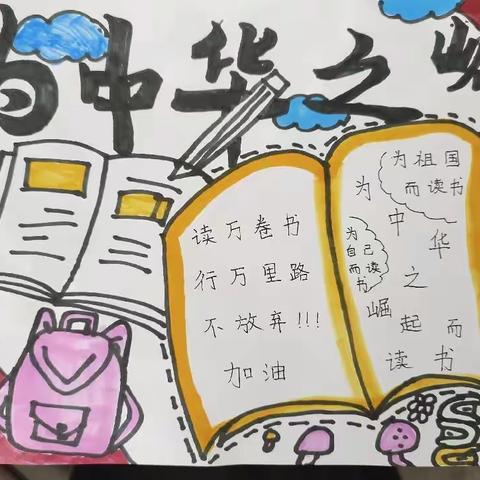 为中华之崛
读万卷书
行万里路
不放弃!!!
加油
为祖国
而读书
为中华之崛起而读书
为
自己
而读书